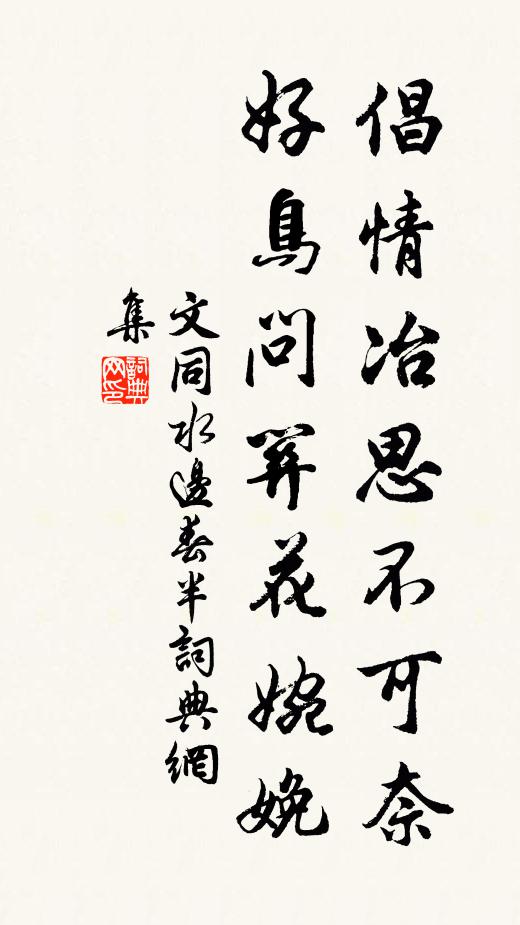 倡情冶思不可奈
好鳥間關花婉娩
文同水邊春半詞典網
集
詞典网印